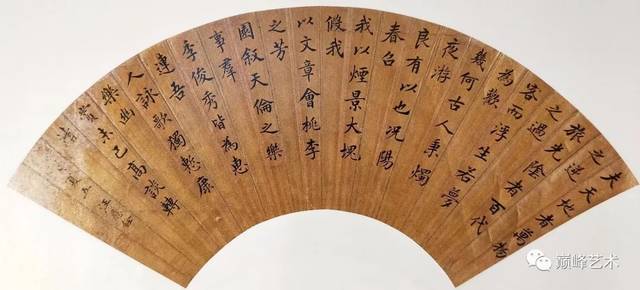 夫天地者萬物
之逆
旅光陰者百代
之過
客而浮生若夢
為歡
幾何古人秉燭
夜游
良有以也況陽
春召
我以煙景大塊
假我
以文章會桃李
之芳
園叙天倫之樂
事羣
季俊秀皆為惠
連吾
人詠歌獨慙康
樂幽
賞未已高談轉
清
夏五
巅峰艺术